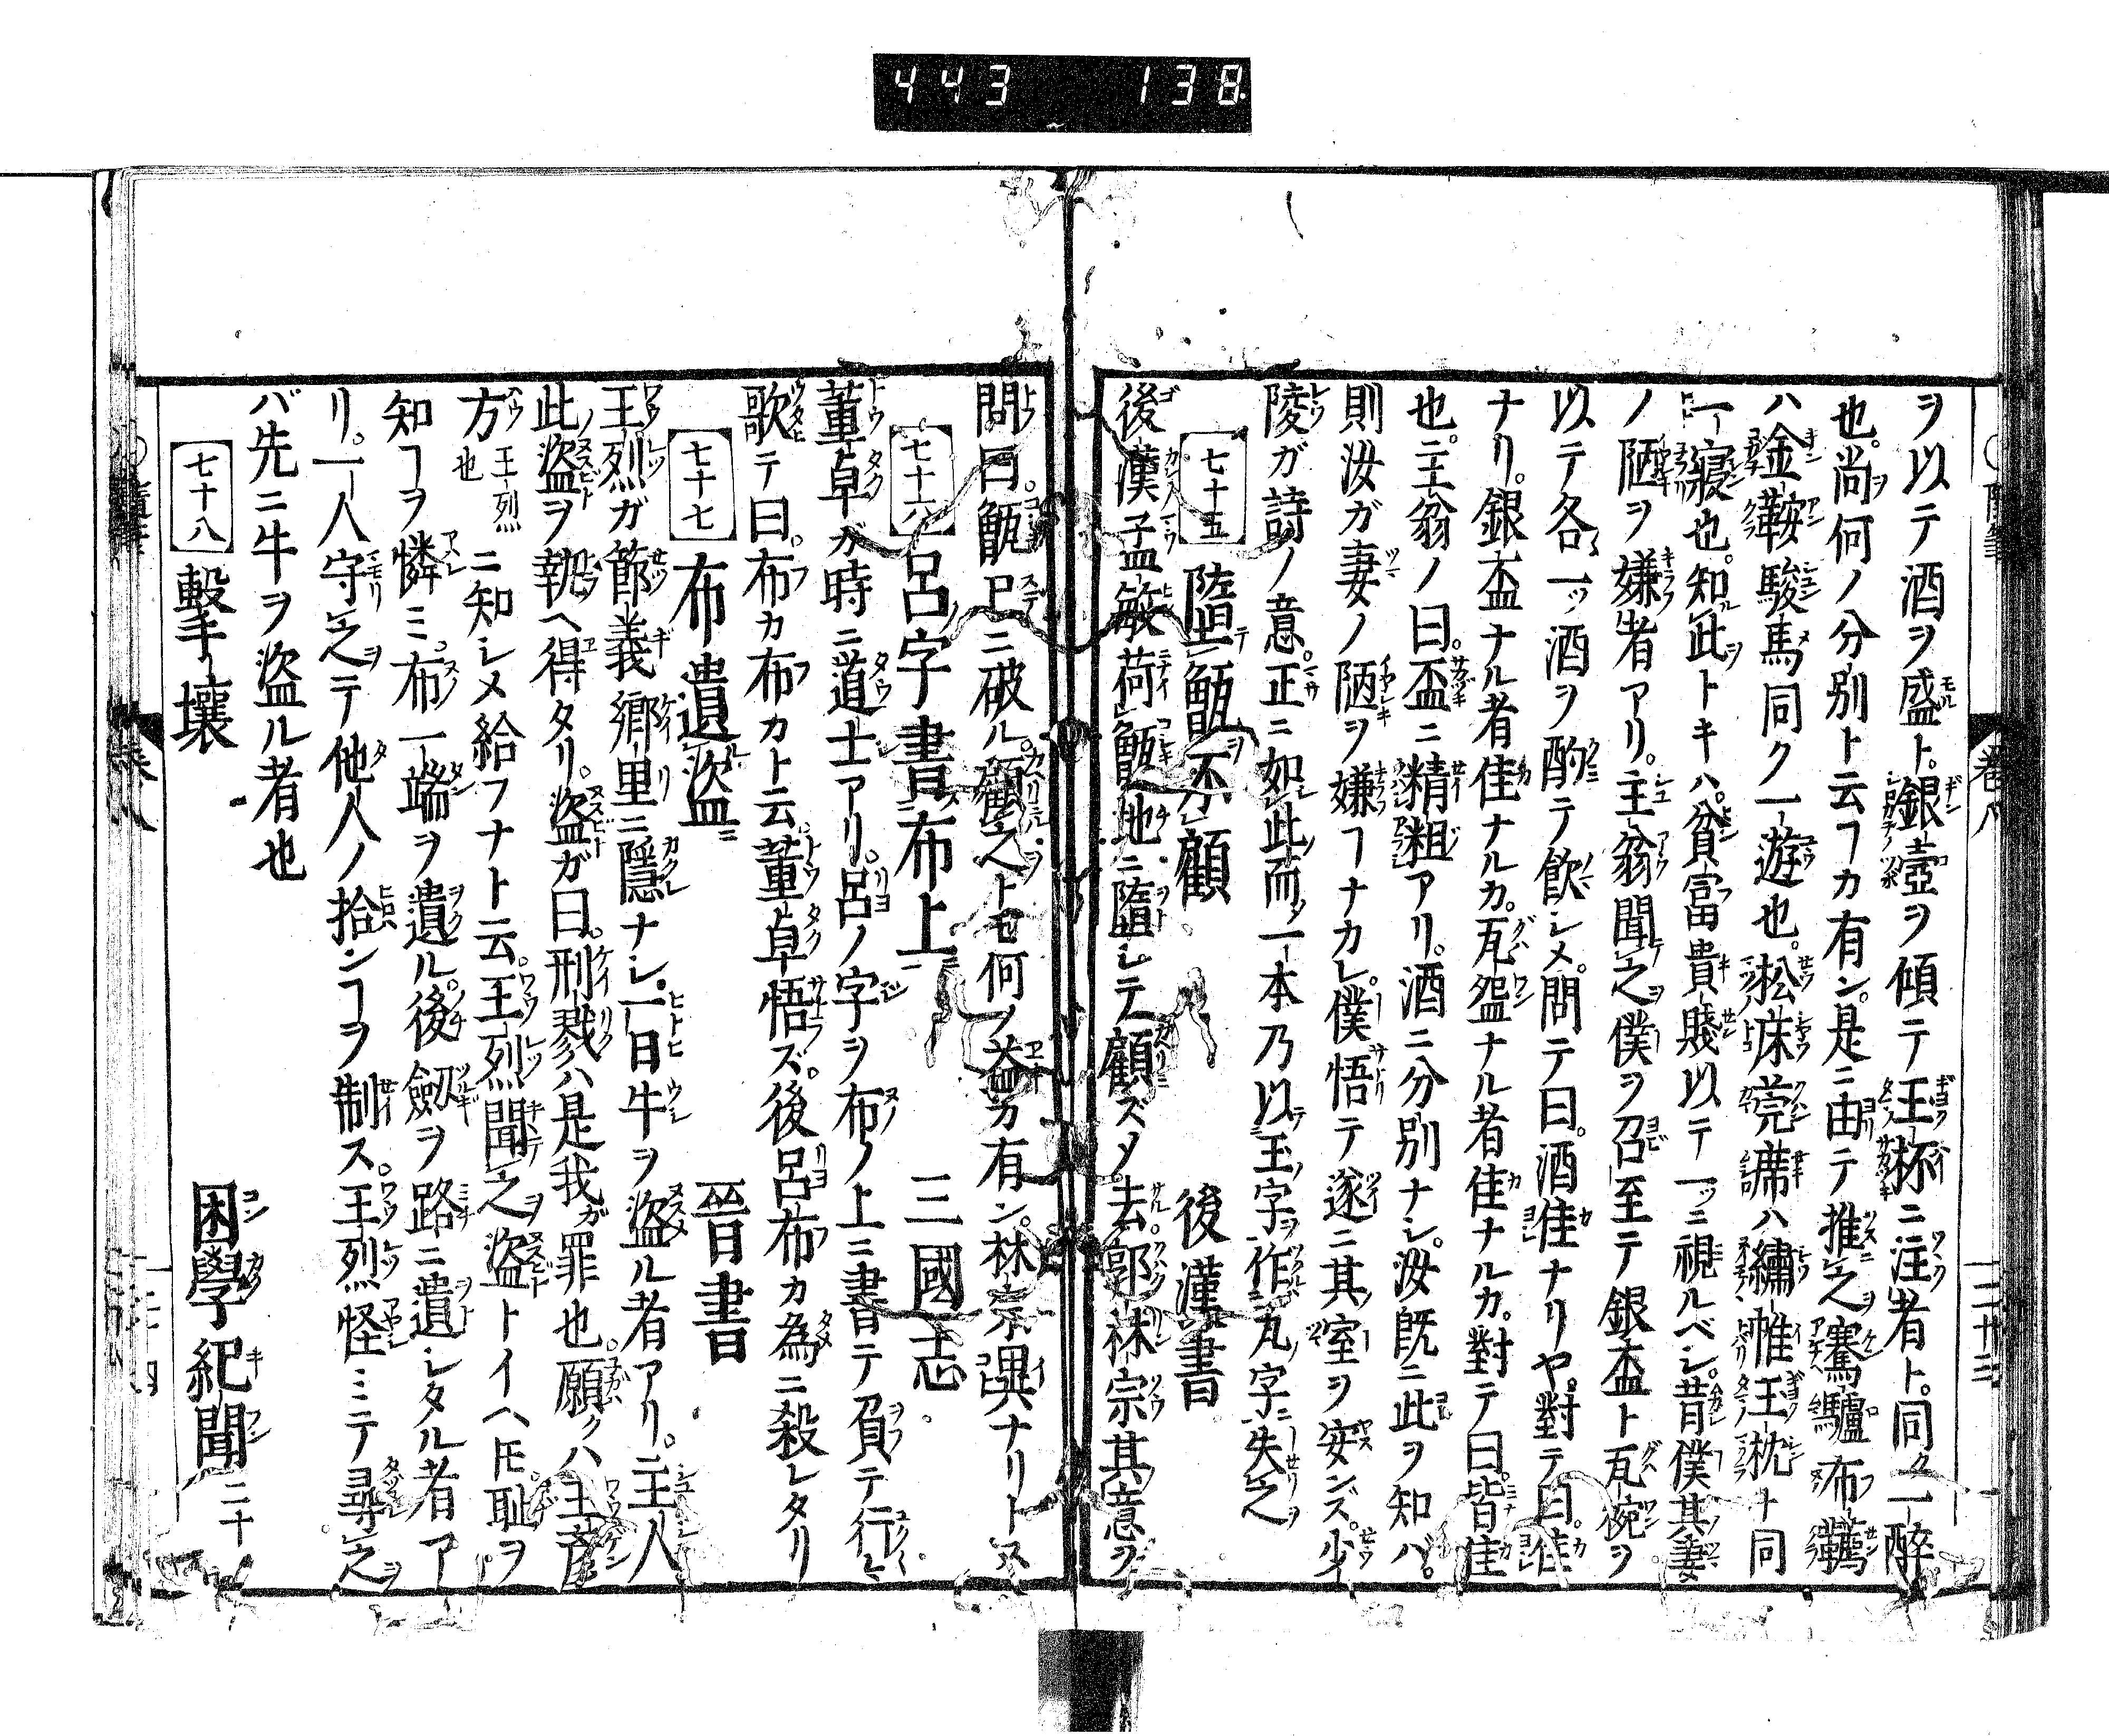 443 138
ヲ以テ酒ヲ盛ト。銀壺ヲ傾テ玉杯ニ注者ト。同ク一醉
也。尚何ノ分別ト云フカ有ン。是ニ由テ推之蹇驢布韉
ハ金鞍駿馬同ク一遊也。松床莞席ハ繡帷玉枕ト同
一寢也。知此トキハ。貧富貴賤以テ一ツニ視ルベシ。昔僕其妻
ノ陋ヲ嫌者アリ。主翁聞之僕ヲ召至テ銀盃ト瓦椀ヲ
以テ各一ツ酒ヲ酌テ飮シメ。問テ曰。酒佳ナリヤ。對テ曰。佳
ナリ。銀盃ナル者佳ナルカ。瓦盌ナル者佳ナルカ。對テ曰。皆佳
也。主翁ノ曰。盃ニ精粗アリ。酒ニ分別ナシ。汝既ニ此ヲ知バ。
則汝ガ妻ノ陋ヲ嫌フナカレ。僕悟テ遂ニ其室ヲ安ンズ。少
陵ガ詩ノ意。正ニ如此而一本乃以玉字作瓦字失之
七十五 墮甑不顧 後漢書
後漢孟敏荷甑地ニ墮シテ顧ズメ去。郭林宗其意ヲ
問曰。甑已ニ破ル。顧之トモ何ノ益カ有ン。林宗異ナリトス
七十六 呂字書布上 三國志
董卓ガ時ニ道士アリ。呂ノ字ヲ布ノ上ニ書テ負テ行
歌テ曰。布カ布カト云。董卓悟ズ。後呂布カ為ニ殺レタリ
七十七 布遺盜 晉書
王烈ガ節義鄉里ニ隱ナシ。一日牛ヲ盜ル者アリ。主人
此盜ヲ執ヘ得タリ。盜ガ曰。刑戮ハ是我ガ罪也。願クハ王彥
方王烈也ニ知シメ給フナト云。王烈聞之盜トイヘ𪜈耻ヲ
知ヿヲ憐ミ。布一端ヲ遺ル。後劔ヲ路ニ遺シタル者ア
リ。一人守之テ他人ノ拾ンヿヲ制ス。王烈怪ミテ尋之
バ先ニ牛ヲ盜ル者也
七十八 擊壤 困學紀聞二十